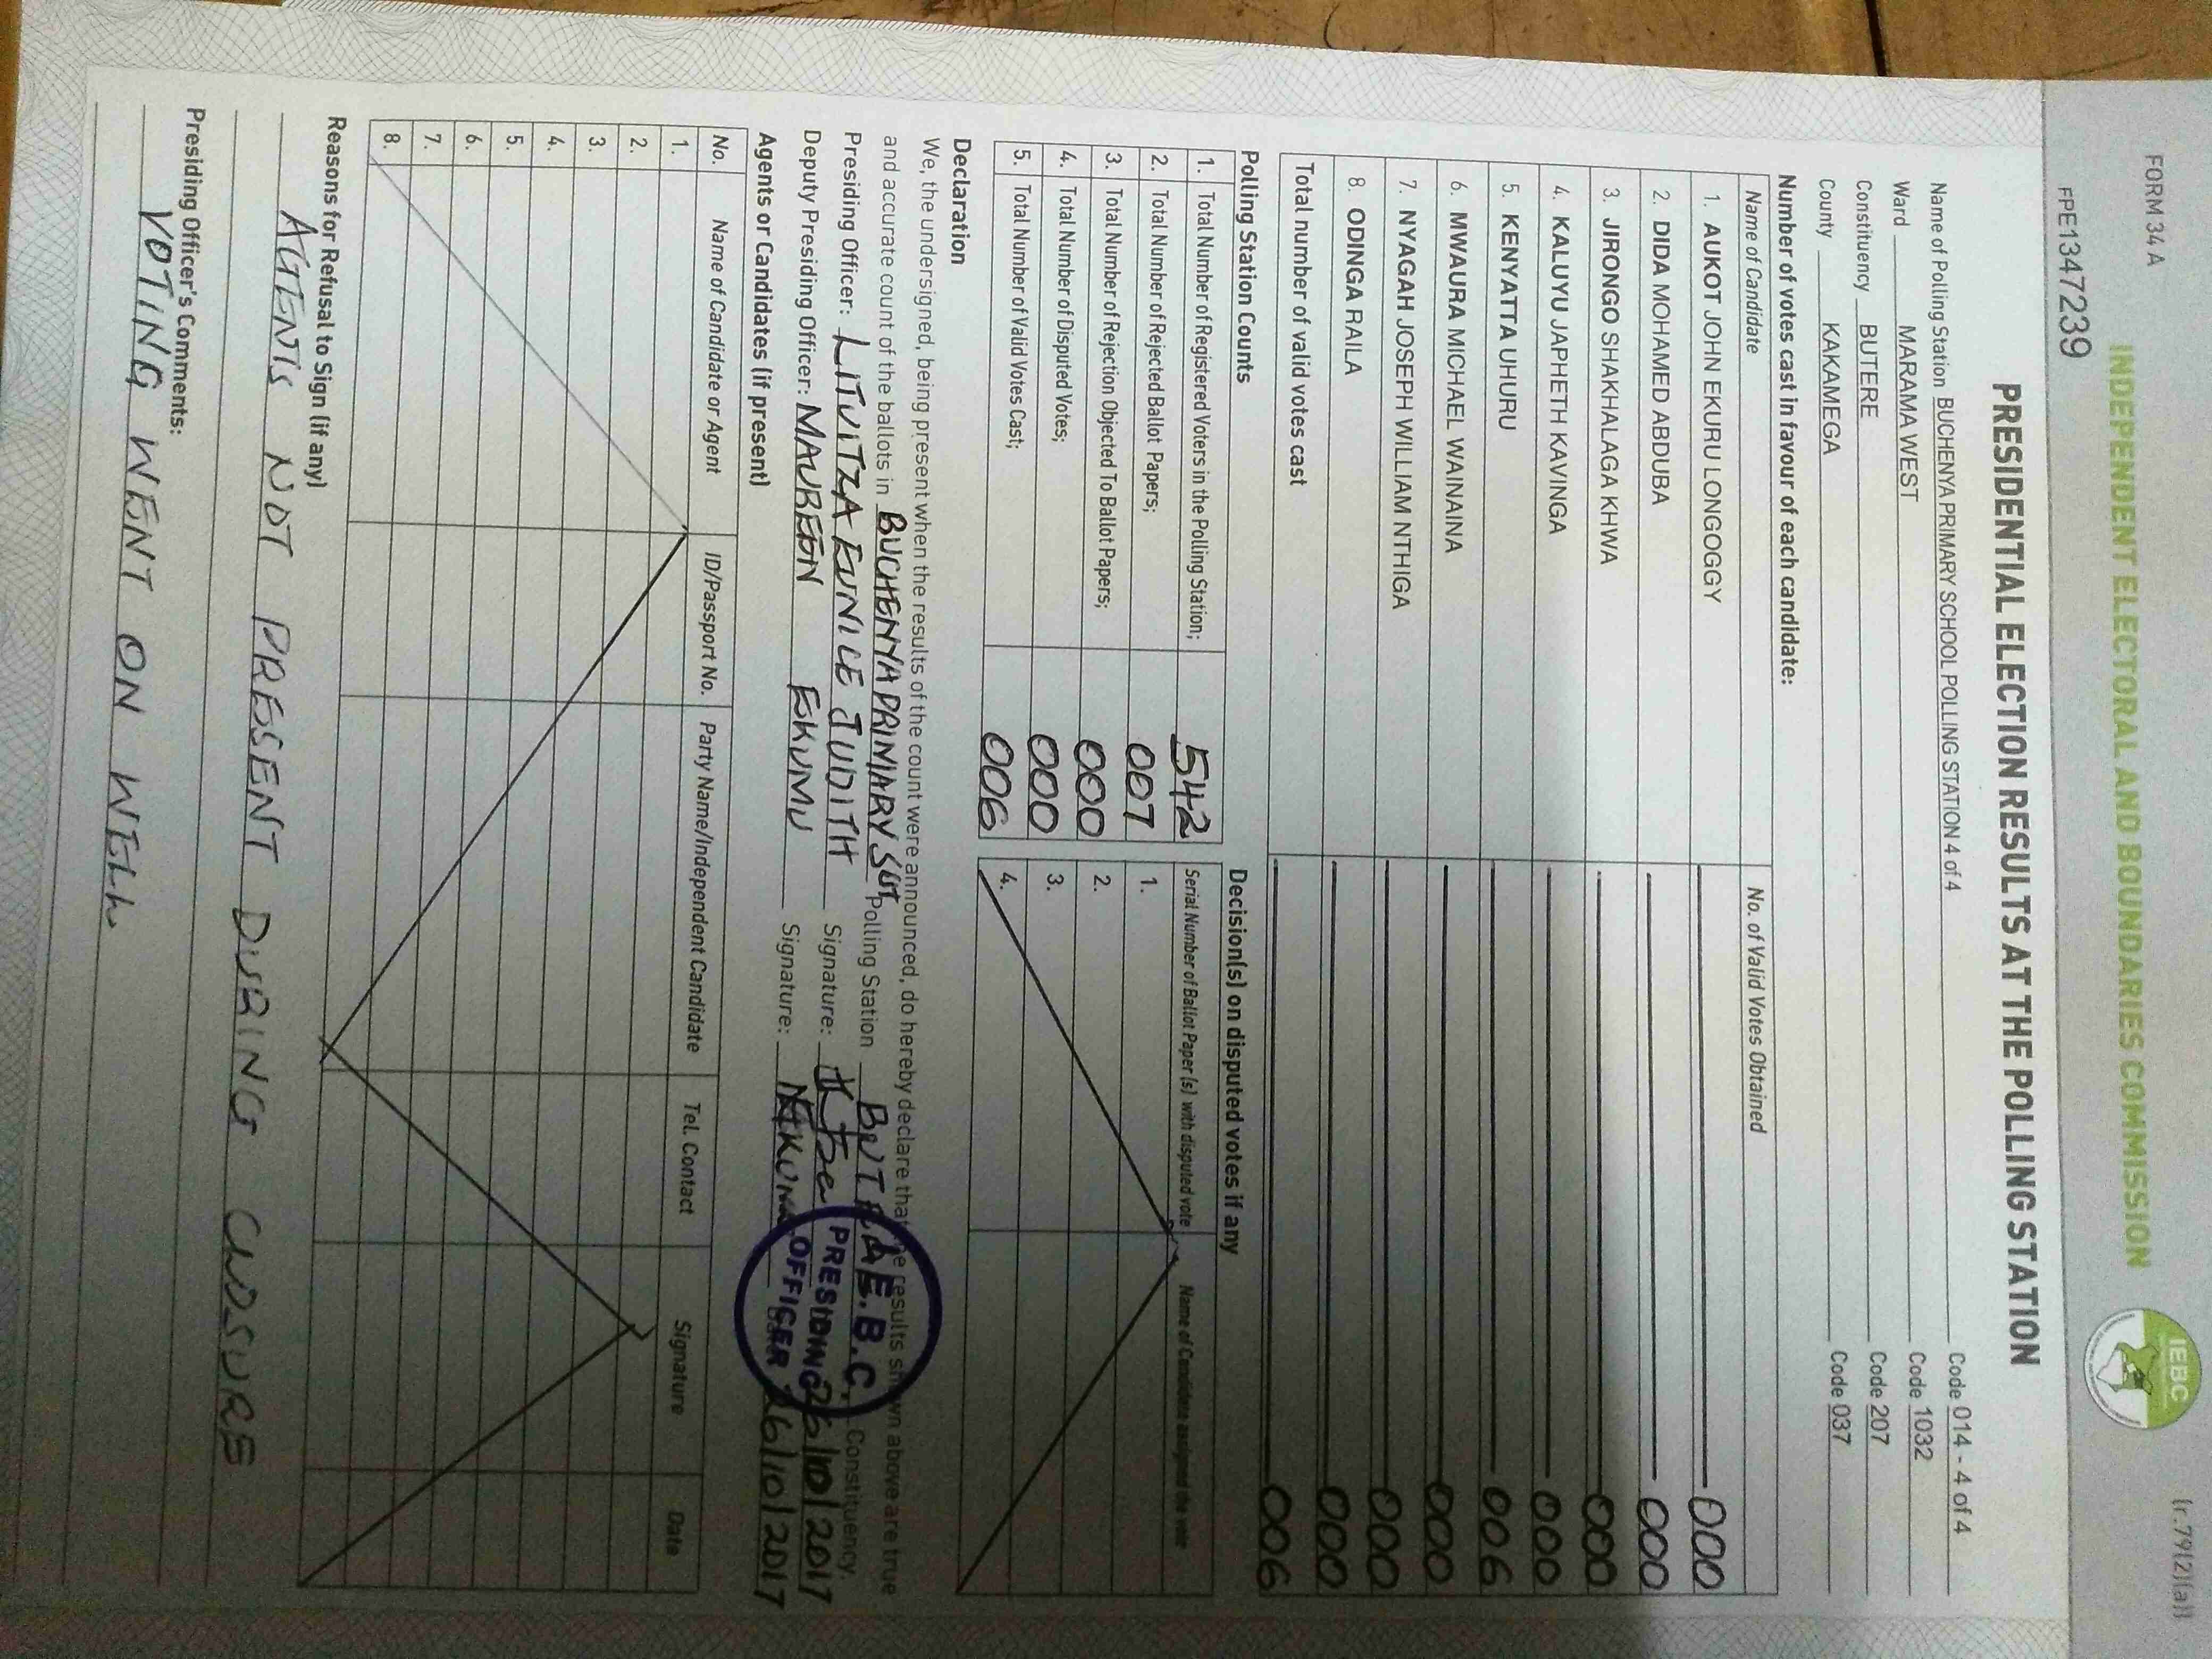 FORM 34 A
(r.79(2)(a))
INDEPENDENT ELECTORAL AND BOUNDARIES COMMISSION
IEBC
FPE1347239
PRESIDENTIAL ELECTION RESULTS AT THE POLLING STATION
Name of Polling Station BUCHENYA PRIMARY SCHOOL POLLING STATION 4 of 4 Code 014 - 4 of 4
Ward MARAMA WEST Code 1032
Constituency BUTERE Code 207
County KAKAMEGA Code 037
Number of votes cast in favour of each candidate:
Name of Candidate No. of Valid Votes Obtained
1. AUKOT JOHN EKURU LONGOGGY 000
2. DIDA MOHAMED ABDUBA 000
3. JIRONGO SHAKHALAGA KHWA 000
4. KALUYU JAPHETH KAVINGA 000
5. KENYATTA UHURU 006
6. MWAURA MICHAEL WAINAINA 000
7. NYAGAH JOSEPH WILLIAM NTHIGA 000
8. ODINGA RAILA 000
Total number of valid votes cast 006
Polling Station Counts
1. Total Number of Registered Voters in the Polling Station; 542
2. Total Number of Rejected Ballot Papers; 007
3. Total Number of Rejection Objected To Ballot Papers; 000
4. Total Number of Disputed Votes; 000
5. Total Number of Valid Votes Cast; 006
Decision(s) on disputed votes if any
Serial Number of Ballot Paper (s) with disputed vote Name of Candidate assigned the vote
1.
2.
3.
4.
Declaration
We, the undersigned, being present when the results of the count were announced, do hereby declare that the results shown above are true
and accurate count of the ballots in BUCHENYA PRIMARY Polling Station Constituency.
Presiding Officer: LITUITZA EUNICE JUDITH Signature: 26/10/2017
Deputy Presiding Officer: MAUREEN EKUMU Signature: 26/10/2017
I.E.B.C.
PRESIDING
OFFICER
Agents or Candidates (if present)
No. Name of Candidate or Agent ID/Passport No. Party Name/Independent Candidate Tel. Contact Signature Date
1.
2.
3.
4.
5.
6.
7.
8.
Reasons for Refusal to Sign (if any)
AGENTS NOT PRESENT DURING CLOSURE
Presiding Officer's Comments:
VOTING WENT ON WELL